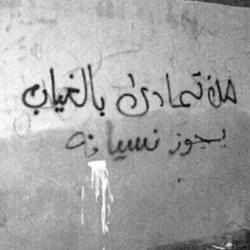 من تمادى بالغياب
يجوز نسيانه